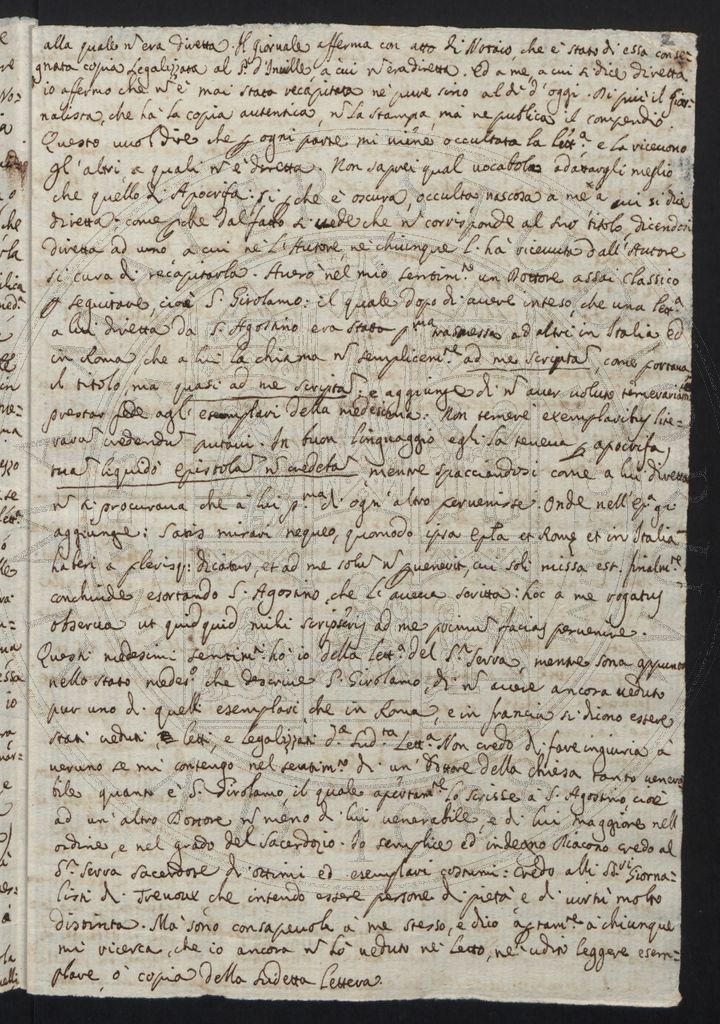 alla quale nõ era diretta. Il giornale afferma con atto di Notaio, che è stato di essa conse=
gnata copia legalizzata al S.r d'Inville à cui nõ era diretta. Ed a me, a cui si dice diretta
io affermo che nõ è mai stata recapitata ne pure sino al dì d'oggi. Di più il Gior=
nalista, che hà la copia autentica nõ la stampa, mà ne publica il compendio.
Questo vuol dire che p ogni parte mi viene occultata la lett.a e la ricevono
gl'altri a quali nõ è diretta. Non saprei qual vocabolo adattargli meglio
che quello di Apocrifa: si pche è oscura, occulta nascosa a me à cui si dice
diretta: come pche dal fatto si vede che nõ corrisponde al suo titolo, dicendosi
diretta ad uno, a cui ne l'Autore, ne chiunque l'hà ricevuta dall'Autore
si cura di recapitarla. Averò nel mio sentim.to un Dottore assai classico
p seguitare, cioè S. Girolamo: il quale dopo di avere inteso, che una lett.a
a lui diretta da S. Agostino era stata p.ma trasmessa ad altri in Italia ed
in Roma che a lui la chiama nõ semplicem.te ad me scripta, come portava
il titolo, ma quasi ad me scripta: e aggiunge di nõ aver voluto temerariam.te
prestar fede agl'esemplari della medesima: Non temere exemplaribus lite=
rarũ credendũ putavi. In buon linguaggio egli la teneva p apocrifa,
tuã liquido epistolã nõ credebã mentre spacciandosi come a lui diretta
nõ si procurava che à lui p.ma di ogn'altro pervenisse. Onde nell'ep.a 91
aggiunge: Satis mirari nequeo, quomodo ipsa Epla et Romę et in Italia
haberi a plerisq: dicatur, et ad me solũ nõ puenerit, cui soli missa est. finalm.te
conchiude esortando S. Agostino, che l'aveva scritta: hoc a me rogatus
observa ut quidquid mihi scripseris ad me primum facias pervenire.
Questi medesimi sentim.ti hò io della lett.a del S.r Serva, mentre sono appunto
nello stato medes.o che descrive S. Girolamo, di nõ avere ancora veduto
pur uno di quelli esemplari che in Roma, e in francia si dicono essere
stati veduti letti, e legalizzati d.a Sud.ta Lett.a Non credo di fare ingiuria à
veruno se mi contengo nel sentim.to di un Dottore della chiesa tanto venera
bile quanto è S. Girolamo, il quale apertam.te lo scrisse a S. Agostino, cioè
ad un altro Dottore nõ meno di lui venerabile, e di lui maggiore nell
ordine, e nel grado del Sacerdozio. Io semplice ed indegno Diacono credo al
S.r Serva sacerdote di ottimi ed esemplari costumi: Credo alli SS.ri Giorna=
listi di Trevoux che intendo essere persone di pietà e di virtù molto
distinta. Mà sono consapevole à me stesso, e dico apertam.te à chiunque
mi ricerca, che io ancora nõ hò veduto nè letto, nè udito leggere esem=
plare, ò copia della sudetta Lettera.